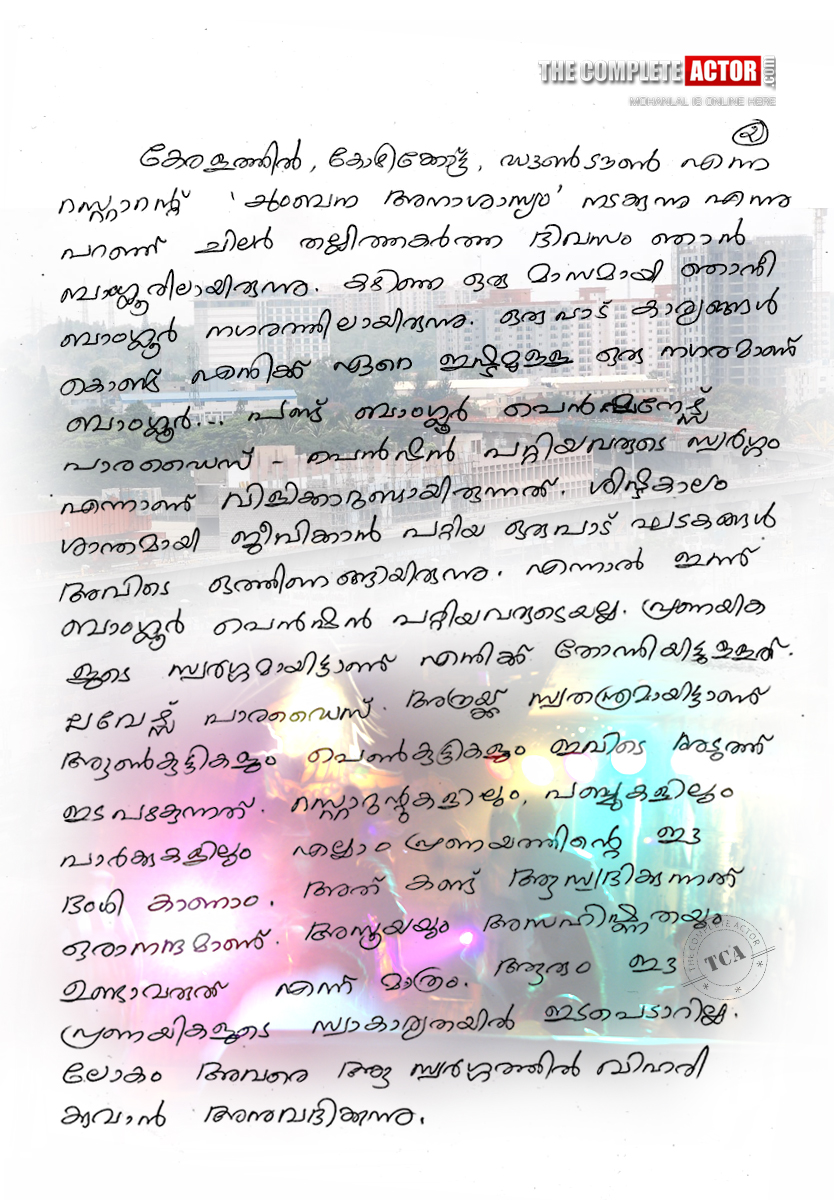 THE COMPLETE ACTOR .com
MOHANLAL IS ONLINE HERE
൨
കേരളത്തിൽ, കോഴിക്കോട്ട്, ഡൗൺടൗൺ എന്ന
റസ്റ്റാറന്റ് 'ചുംബന അനാശാസ്യം' നടക്കുന്നു എന്നു
പറഞ്ഞ് ചിലർ തല്ലിത്തകർത്ത ദിവസം ഞാൻ
ബാംഗ്ലൂരിലായിരുന്നു. കഴിഞ്ഞ ഒരു മാസമായി ഞാൻ
ബാംഗ്ലൂർ നഗരത്തിലായിരുന്നു. ഒരുപാട് കാര്യങ്ങൾ
കൊണ്ട് എനിക്ക് ഏറെ ഇഷ്ടമുള്ള ഒരു നഗരമാണ്
ബാംഗ്ലൂർ... പണ്ട് ബാംഗ്ലൂർ പെൻഷനേഴ്സ്
പാരഡൈസ് - പെൻഷൻ പറ്റിയവരുടെ സ്വർഗ്ഗം
എന്നാണ് വിളിക്കാറുണ്ടായിരുന്നത്. ശിഷ്ടകാലം
ശാന്തമായി ജീവിക്കാൻ പറ്റിയ ഒരുപാട് ഘടകങ്ങൾ
അവിടെ ഒത്തിണങ്ങിയിരുന്നു. എന്നാൽ ഇന്ന്
ബാംഗ്ലൂർ പെൻഷൻ പറ്റിയവരുടെയല്ല. പ്രണയിക
ളുടെ സ്വർഗ്ഗമായിട്ടാണ് എനിക്ക് തോന്നിയിട്ടുള്ളത്.
ലവേഴ്സ് പാരഡൈസ്. അത്രയ്ക്ക് സ്വതന്ത്രമായിട്ടാണ്
ആൺകുട്ടികളും പെൺകുട്ടികളും ഇവിടെ അടുത്ത്
ഇടപഴകുന്നത്. റസ്റ്റോറന്റുകളിലും, പബ്ബുകളിലും
പാർക്കുകളിലും എല്ലാം പ്രണയത്തിന്റെ ഈ
ഭംഗി കാണാം. അത് കണ്ട് ആസ്വദിക്കുന്നത്
ഒരാനന്ദമാണ്. അസൂയയും അസഹിഷ്ണുതയും
ഉണ്ടാവരുത് എന്ന് മാത്രം. ആരും ഈ
പ്രണയികളുടെ സ്വകാര്യതയിൽ ഇടപെടാറില്ല.
ലോകം അവരെ ആ സ്വർഗ്ഗത്തിൽ വിഹരി
ക്കുവാൻ അനുവദിക്കുന്നു.
THE COMPLETE ACTOR
TCA